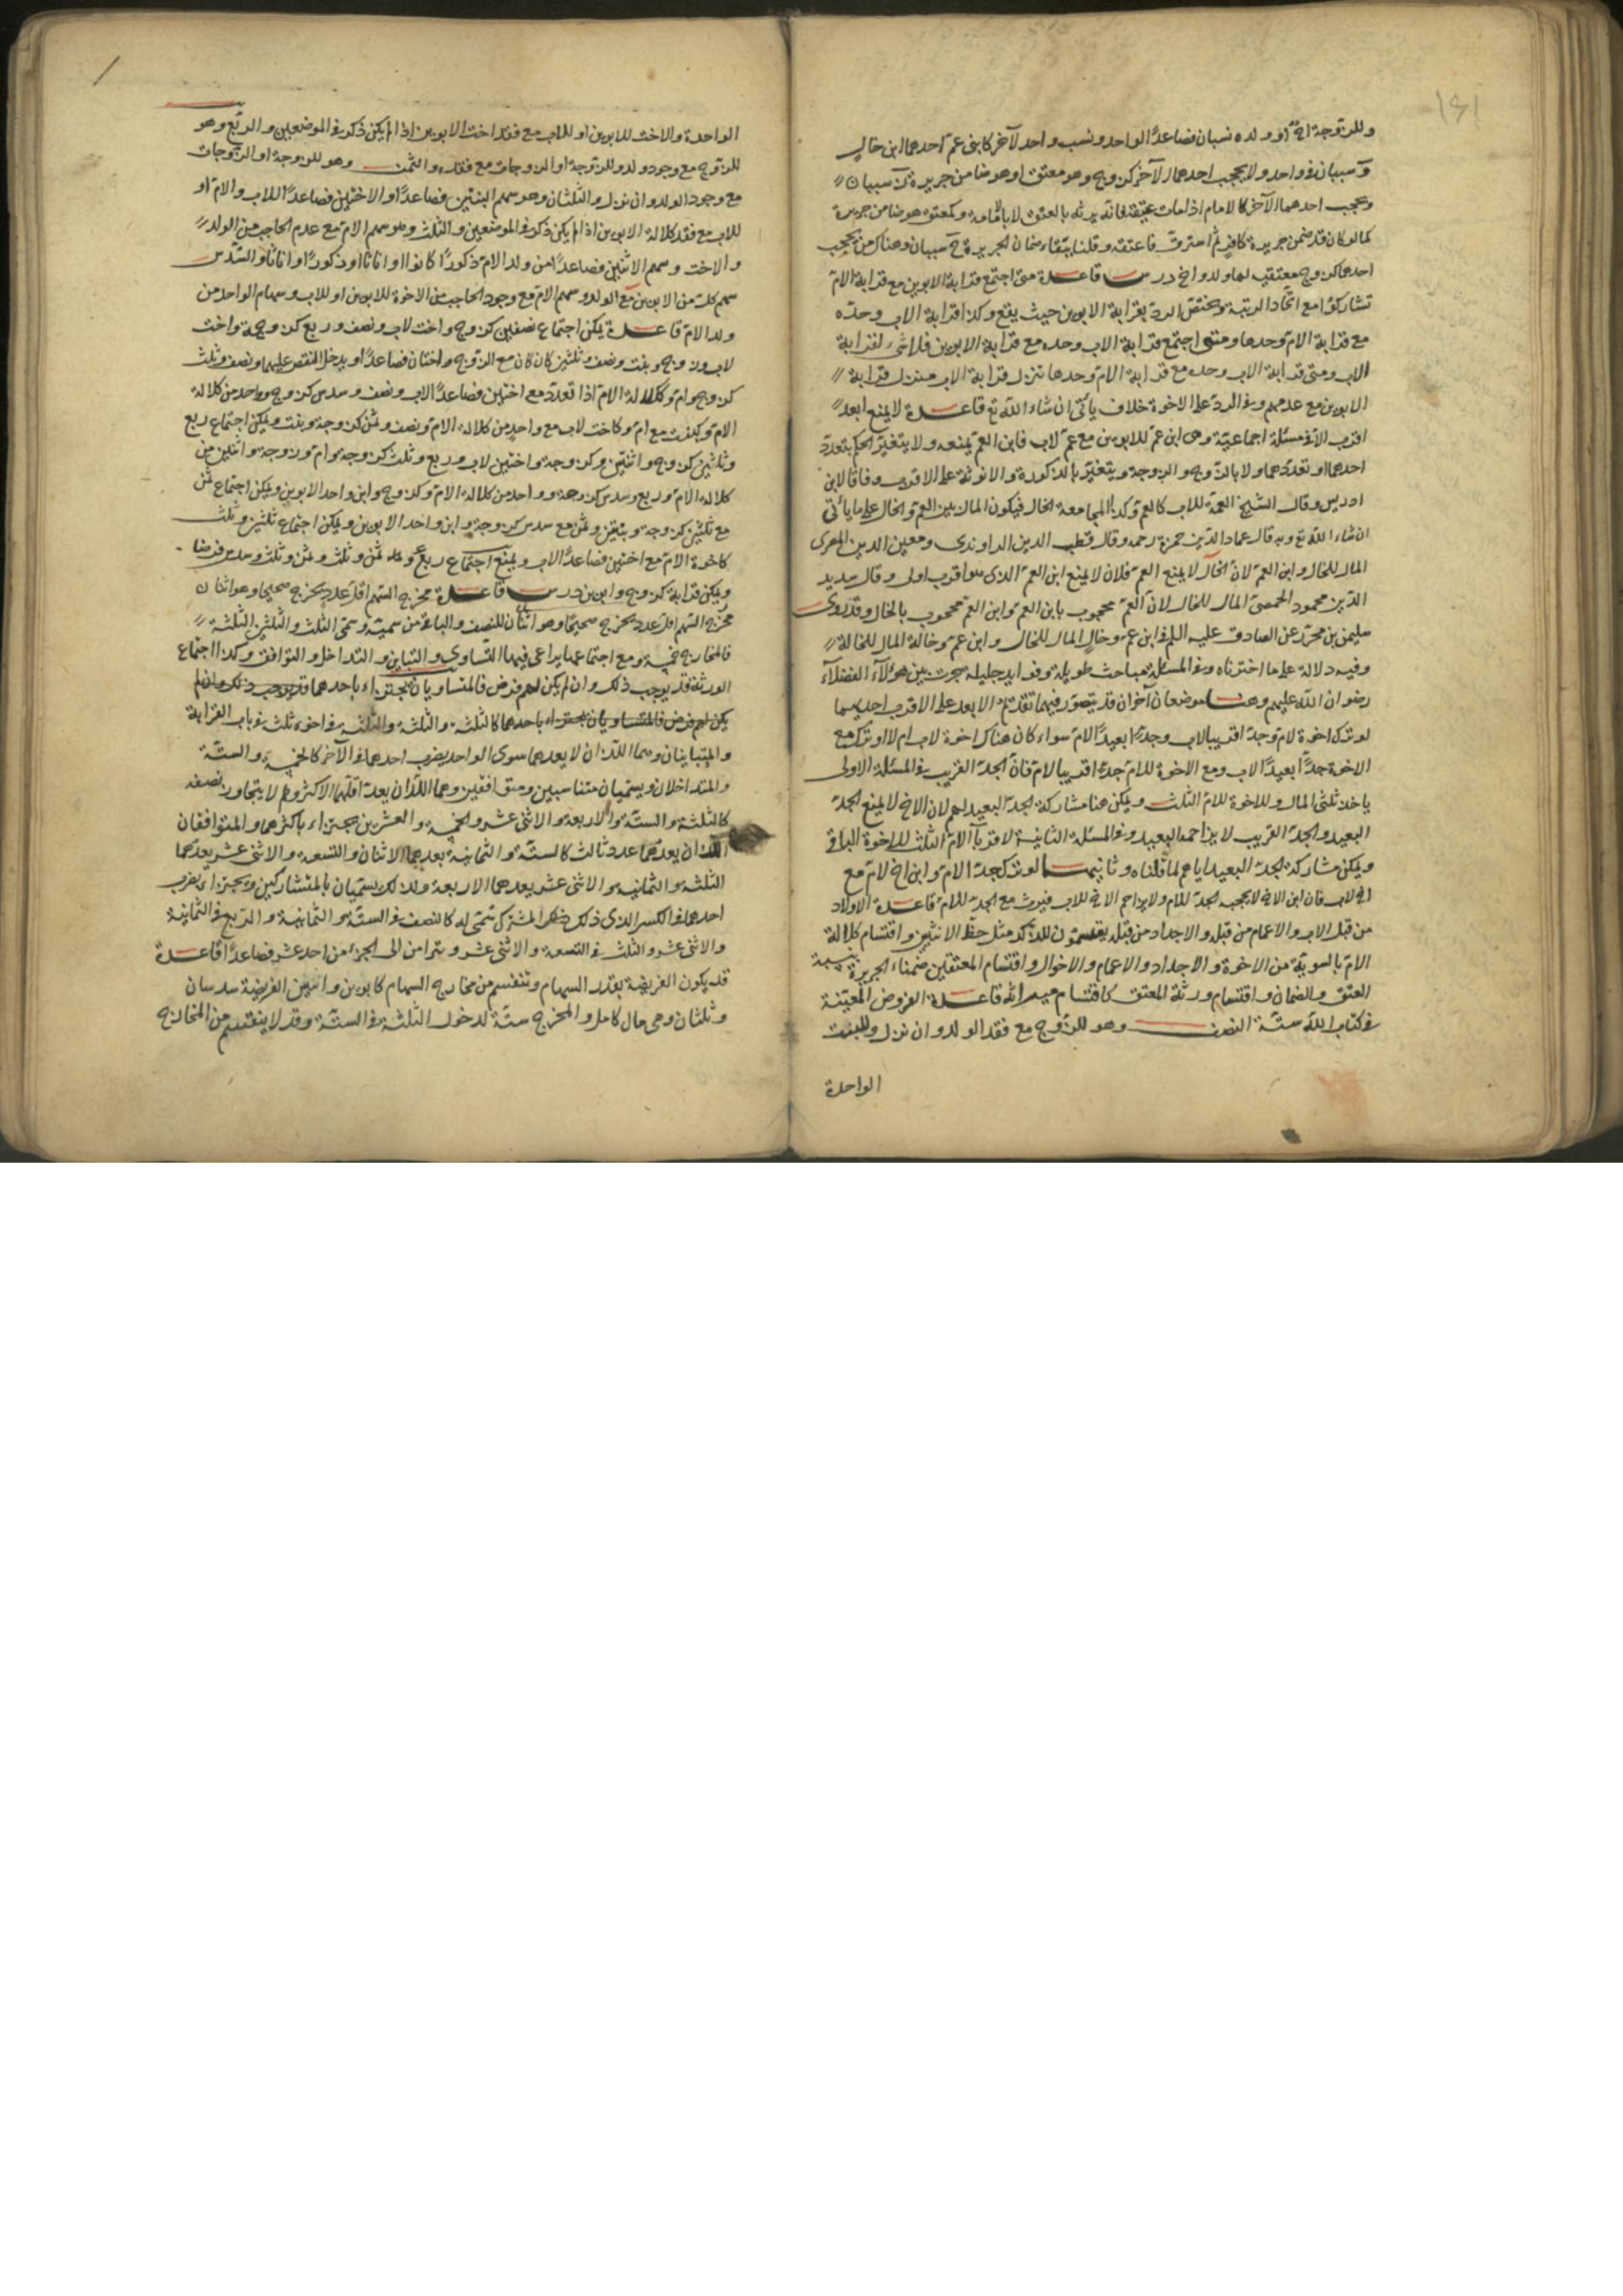 وللزوجة اخ او ولده نسبان فصاعدًا لواحد ونسب واحد لآخر كابنى عم احدهما ابن خال
وسببان فى واحد ولا يحجب احدهما الآخر كزوج وهو معتق او هو ضامن جريرة
ويحجب احدهما الآخر كالامام اذا مات عتيقه فانه يرثه بالعتق لا بالامامة وكمعتق هو ضامن جريرة
كما لو كان قد ضمن جريرة كافر ثم استرق فاعتقه وقلنا ببقاء ضمان الجريرة سببان وهناك من يحجب
احدهما كزوج معتق لها ولد او اخ درس قاعدة متى اجتمع قرابة الابوين مع قرابة الام
تشاركوا مع اتحاد الرتبة ويختص الرد بقرابة الابوين حيث يقع وكذا قرابة الاب وحده
مع قرابة الام وحدها ومتى اجتمع قرابة الاب وحده مع قرابة الابوين فلا شىء لقرابة
الاب ومتى قرابة الاب وحده مع قرابة الام وحدها تنزل قرابة الاب منزلة قرابة
الابوين مع عدمهم وفى الرد على الاخوة خلاف يأتى ان شاء الله تع قاعدة لا يمنع ابعد
اقرب الا فى مسئلة اجماعية وهى ابن عم للابوين مع عم لاب فابن العم يمنعه ولا يتغير الحكم بتعدد
احدهما او تعددهما ولا بالزوج والزوجة ويتغير بالذكورة والانوثة على الاقرب وفاقا لابن
ادريس وقال الشيخ العمة للاب كالعم وكذا المجامعة الخال فيكون المال بين العم والخال على ما يأتى
ان شاء الله تع وبه قال عماد الدين حمزة رحمه وقال قطب الدين الراوندى ومعين الدين المصرى
المال للخال وابن العم لان الخال لا يمنع العم فلان لا يمنع ابن العم الذى هو اقرب اولى وقال سديد
الدين محمود الحمصى المال للخال لان العم محجوب بابن العم وابن العم محجوب بالخال وقد روى
سليمن بن محرز عن الصادق عليه السلم فى ابن عم وخال المال للخال وابن عم وخالة المال للخالة
وفيه دلالة على ما اخترناه وفى المسئلة مباحث طويلة وفوايد جليلة جرت بين هؤلاء الفضلاء
رضوان الله عليهم وهنا موضعان آخران قد يتصور فيهما تقدم الابعد على الاقرب احديهما
لو ترك اخوة لام وجدا قريبا لاب وجدا بعيدًا لام سواء كان هناك اخوة لاب ام لا او ترك مع
الاخوة جدًا بعيدًا لاب ومع الاخوة للام جدا قريبا لام فان الجد القريب فى المسئلة الاولى
ياخذ ثلثى المال وللاخوة للام الثلث ويمكن هنا مشاركة الجد البعيد لهم لان الاخ لا يمنع الجد
البعيد والجد القريب لا يزاحمه البعيد وفى المسئلة الثانية لاقرباء الام الثلث للاخوة الباقى
ويمكن مشاركة الجد البعيد اياهم لما قلناه وثانيهما لو ترك جد الام وابن اخ لام مع
اخ لاب فان ابن الاخ لا يحجبه الجد للام ولا يزاحم الاخ للاب فيرث مع الجد للام قاعدة الاولاد
من قبل الاب والاعمام من قبله والاجداد من قبله يقتسمون للذكر مثل حظ الانثيين واقتسام كلالة
الام بالسوية من الاخوة والاجداد والاعمام والاخوال واقتسام المعتقين ضمناء الجريرة بنسبة
العتق والضمان واقتسام ورثة المعتق كاقتسام ميراثه قاعدة الفروض المعينة
فى كتاب الله ستة النصف وهو للزوج مع فقد الولد وان نزل وللبنت
الواحدة
الواحدة والاخت للابوين او للاب مع فقد اخت الابوين اذا لم يكن ذكر فى الموضعين والربع وهو
للزوج مع وجود ولد وللزوجة او الزوجات مع فقده والثمن وهو للزوجة او الزوجات
مع وجود الولد وان نزل والثلثان وهو سهم البنتين فصاعدًا او الاختين فصاعدًا للاب والام او
للاب مع فقد كلالة الابوين اذا لم يكن ذكر فى الموضعين والثلث وهو سهم الام مع عدم الحاجب من الولد
والاخت وسهم الاثنين فصاعدًا من ولد الام ذكورًا كانوا او اناثا او ذكورًا واناثا والسدس
سهم كل من الابوين مع الولد وسهم الام مع وجود الحاجب من الاخوة للابوين او للاب وسهام الواحد من
ولد الام قاعدة يمكن اجتماع نصفين كزوج واخت لاب ونصف وربع كزوجة واخت
لاب وزوج وبنت ونصف وثلثين كان كان مع الزوج واختان فصاعدًا ويدخل النقص عليهما ونصف وثلث
كزوج وام وكلالة الام اذا تعدد مع اختين فصاعدًا لاب ونصف وسدس كزوج وواحد من كلالة
الام وكبنت مع ام وكاخت لاب مع واحد من كلالة الام ونصف وثمن كزوجة وبنت ويمكن اجتماع ربع
وثلثين كزوج واثنتين وكزوجة واختين لاب وربع وثلث كزوجة وام وزوجة واثنين من
كلالة الام وربع وسدس كزوجة وواحد من كلالة الام وكزوج وابن واحد الابوين ويمكن اجتماع ثمن
مع ثلثين كزوجة وبنتين وثمن مع سدس كزوجة وابن واحد الابوين ويمكن اجتماع ثلثين وثلث
كاخوة الام مع اختين فصاعدًا لاب ويمنع اجتماع ربع وثمن وثلث وثمن وثلث وسدس فرضا
ويمكن قرابة كزوج وابوين درس قاعدة مخرج السهم اقل عدد يخرج صحيحا وهو اثنان
مخرج السهم اقل عدد يخرج صحيحًا وهو اثنان للنصف والباقى من سميه وسمى الثلث والثلثين الثلثة
فالمخارج خمسة ومع اجتماعها يراعى فيها التساوى والتباين والتداخل والتوافق وكذا اجتماع
الورثة قد يوجب ذلك وان لم يكن لهم فرض فالمتساويان يجتزاء باحدهما
كالثلثة والثلثة والثلثة فى اخوة ثلث فى باب القرابة
والمتباينان وهما اللذان لا يعدهما سوى الواحد يضرب احدهما فى الآخر كالخمسة والستة
والمتداخلان ويسميان متناسبين ومتوافقين وهما اللذان يعد اقلهما الاكثر ولا يتجاوز نصفه
كالثلثة والستة والاربعة والاثنى عشر والخمسة والعشرين يجتزاء باكثرهما والمتوافقان
اللذان يعدهما عدد ثالث كالستة والثمانية يعدهما الاثنان والتسعة والاثنى عشر يعدهما
الثلثة والثمانية والاثنى عشر يعدهما الاربعة ولذلك يسميان بالمتشاركين ويجتزاء بضرب
احدهما فى الكسر الذى ذلك المشترك سمى له كالنصف فى الستة والثمانية والربع فى الثمانية
والاثنى عشر والثلث فى التسعة والاثنى عشر وترامن الى الجزء من احد عشر فصاعدًا قاعدة
قد يكون الفريضة بقدر السهام وتنقسم من مخارج السهام كابوين وابنتين الفريضة سدسان
وثلثان وهى مال كامل والمخرج ستة لدخول الثلثة فى الستة وقد لا ينقسم من المخارج